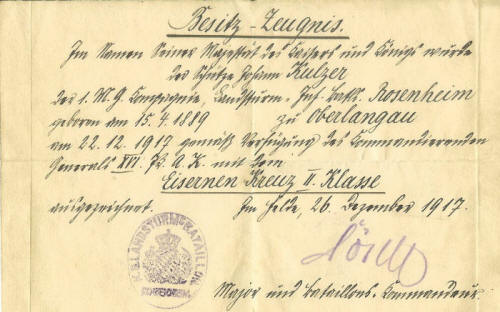 Besitz-Zeugnis.
Im Namen Seiner Majestät des Kaisers und Königs wurde
der Schütze Johann Kulzer
der 1. M. G. Compagnie, Landsturm-Inf. Batls. Rosenheim
geboren am 15. 4. 1889 zu Oberlangau
am 22. 12. 1917 gemäß Verfügung des Commandierenden
Generals XVI. A. K. mit dem
Eisernen Kreuz II. Klasse
ausgezeichnet.
Im Felde, 26. Dezember 1917.
LANDSTURMBATAILLON
ROSENHEIM
Major und Bataillons-Commandeur.